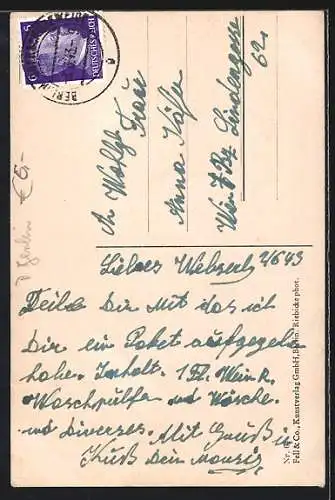 DEUTSCHES REICH
6
BERLIN
An Wohlgb.
Frau
Anna Käfer
Wien 7 Bz. Lindengasse
62
Liebes Weberl 2/6 43
Teile Dir mit das ich
Dir ein Paket aufgegeben
habe. Inhalt. 1 Fl. Wein
Waschpulfer und Wäsche.
und Diverses. Mit Gruß u
Kuß Dein
Nr.
Fell & Co., Kunstverlag GmbH, Berlin. Riebicke phot.
D Berlin € 6,-